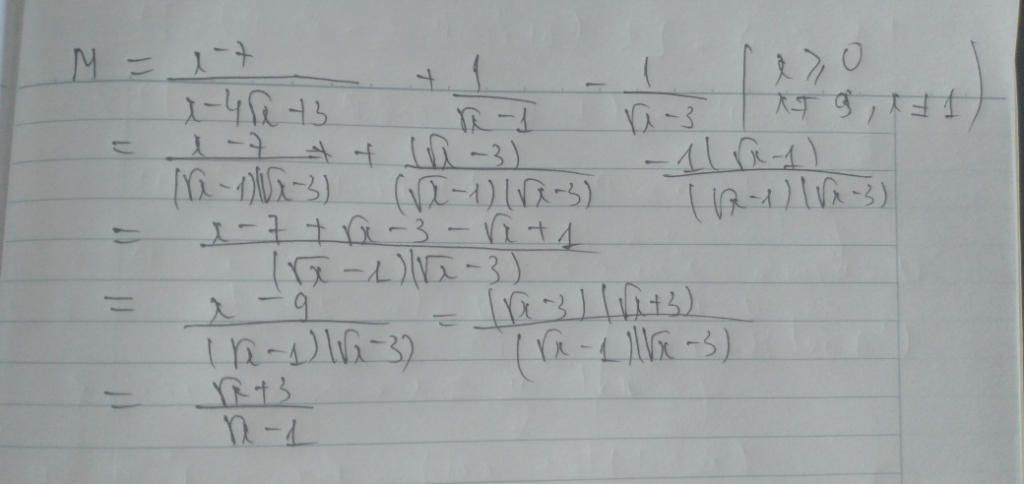 M = (x-7)/(x-4√x+3) + 1/(√x-1) - 1/(√x-3) (x ⩾ 0
x ≠ 9, x ≠ 1)
= (x-7)/((√x-1)(√x-3)) + (√x-3)/((√x-1)(√x-3)) - 1(√x-1)/((√x-1)(√x-3))
= (x-7+√x-3-√x+1)/((√x-1)(√x-3))
= (x-9)/((√x-1)(√x-3)) = (√x-3)(√x+3)/((√x-1)(√x-3))
= (√x+3)/(√x-1)